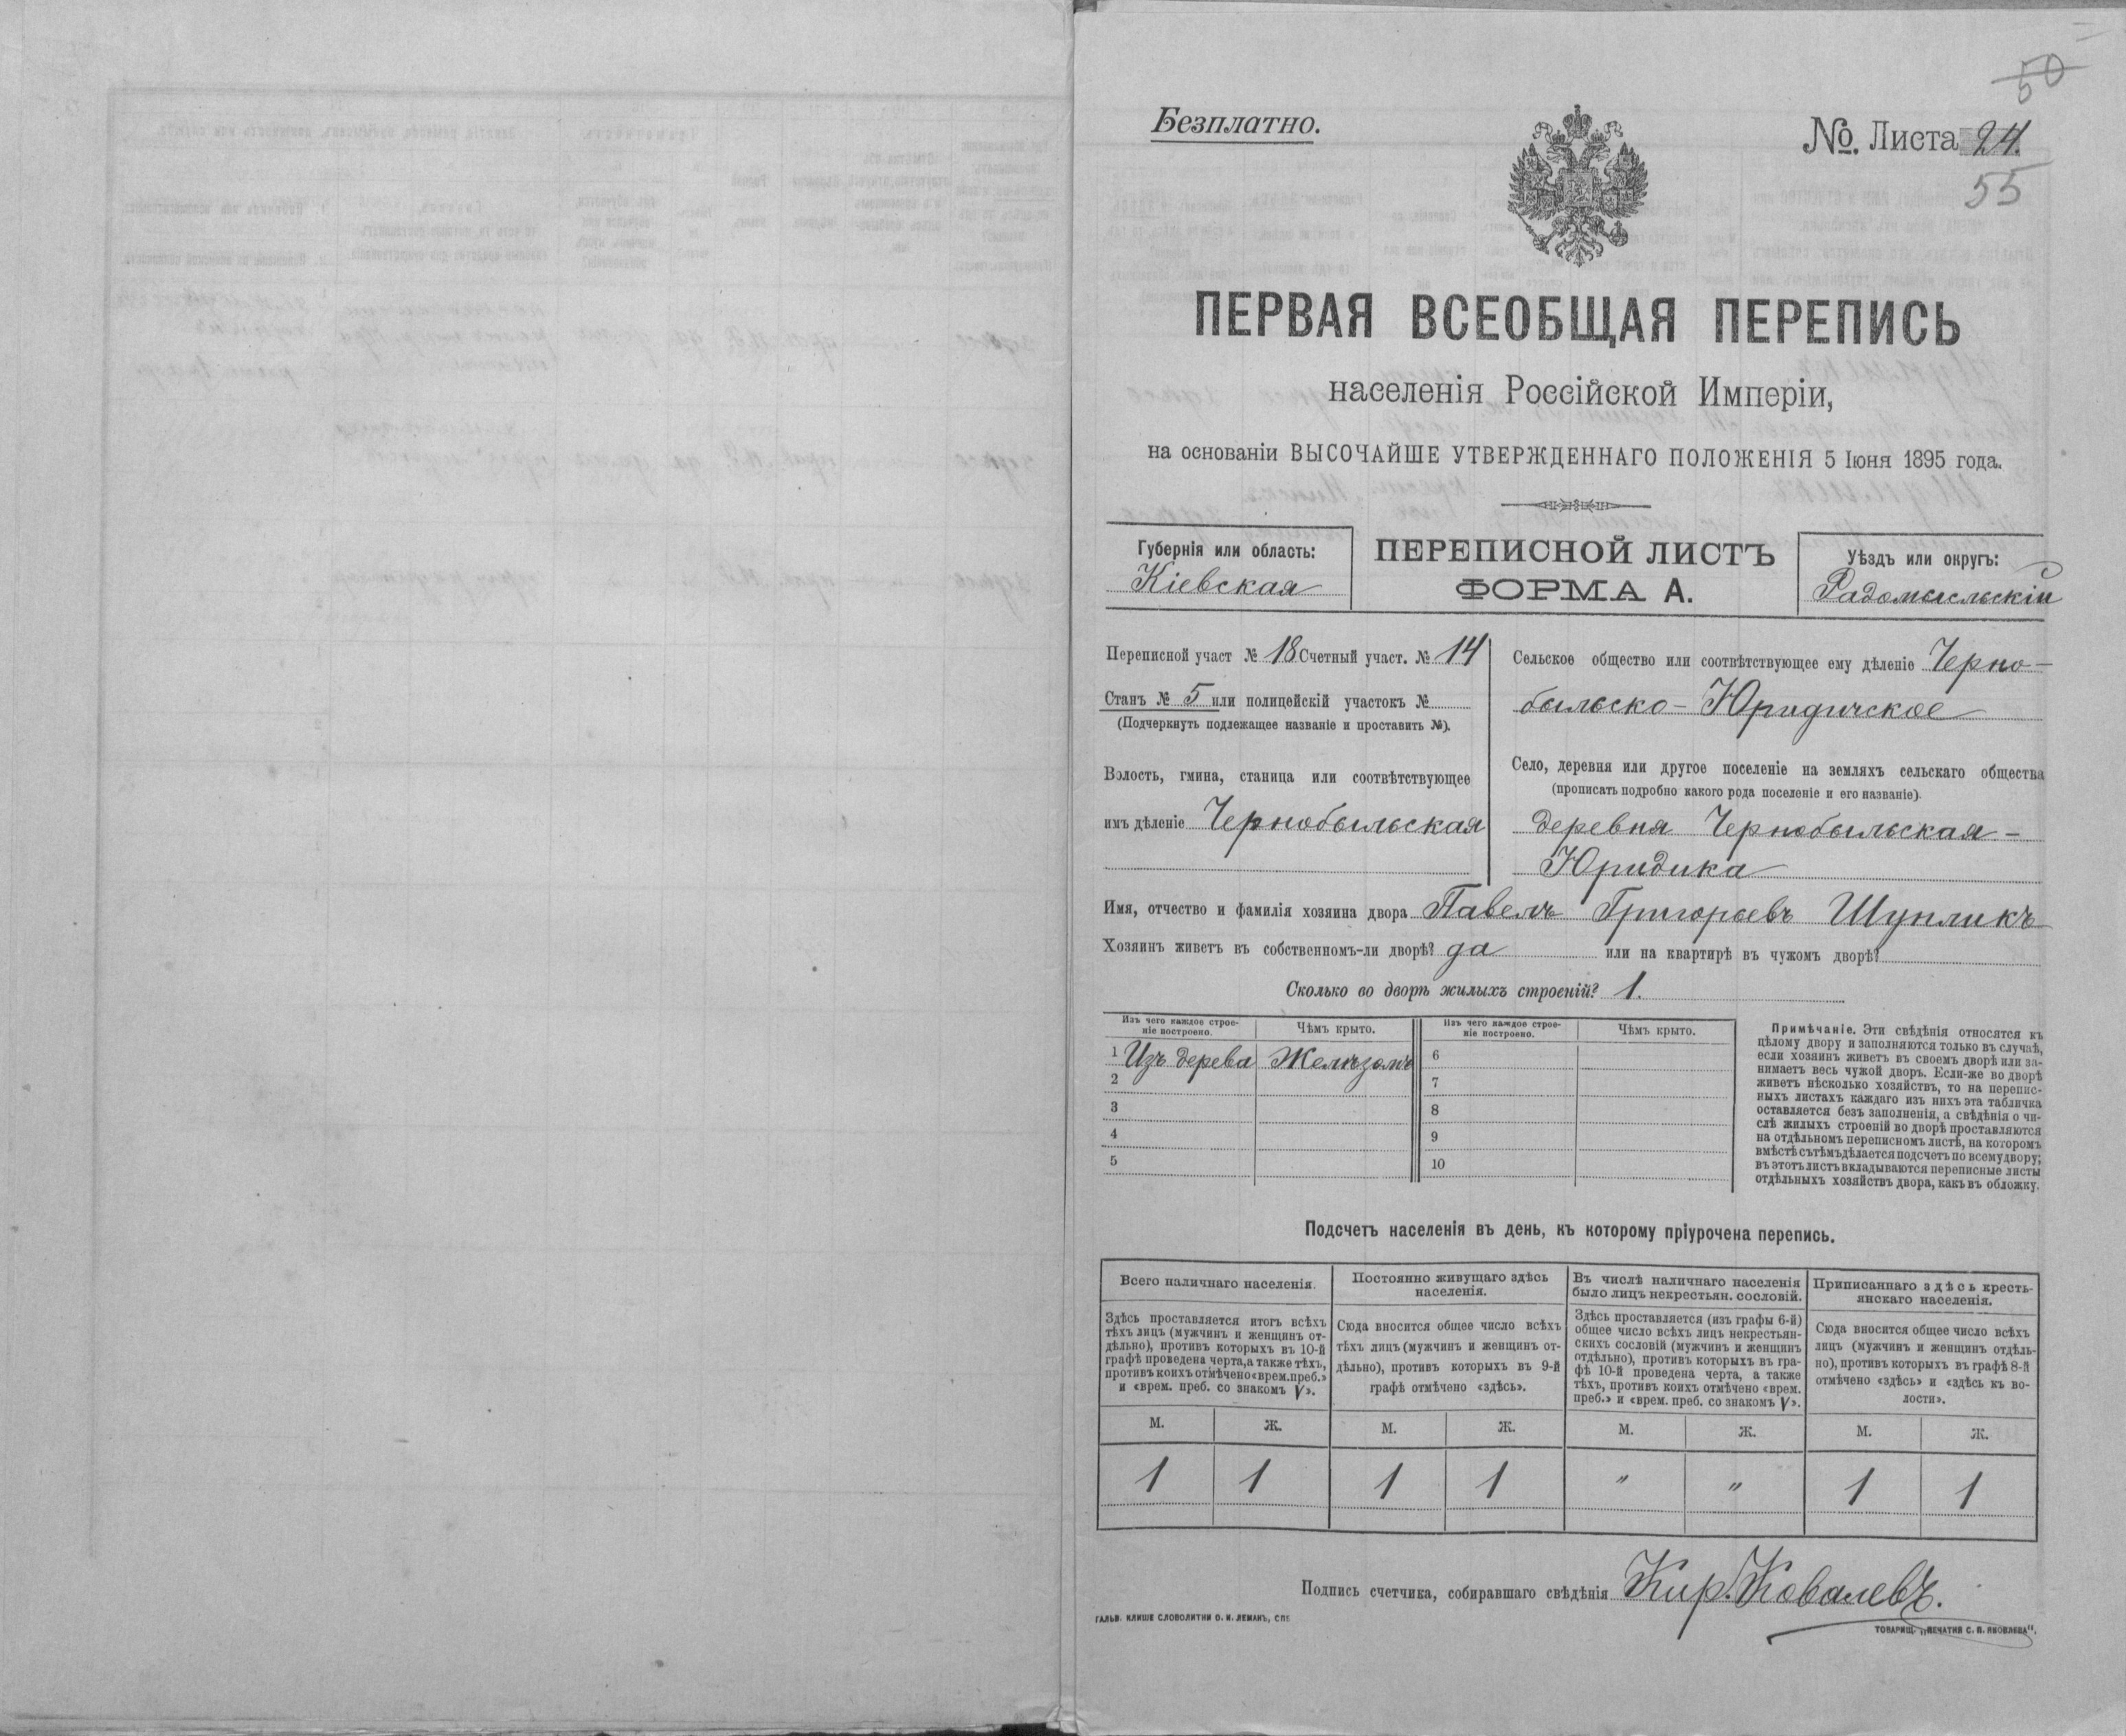 50
Безплатно.
№. Листа 24.
55
ПЕРВАЯ ВСЕОБЩАЯ ПЕРЕПИСЬ
населенія Россійской Имперіи,
на основаніи ВЫСОЧАЙШЕ УТВЕРЖДЕННАГО ПОЛОЖЕНІЯ 5 Іюня 1895 года.
Губернія или область:
Кіевская
ПЕРЕПИСНОЙ ЛИСТЪ
ФОРМА А.
Уѣздъ или округъ:
Радомысльскій
Переписной участ № 18 Счетный участ. № 14
Станъ № 5 или полицейскій участокъ №
(Подчеркнуть подлежащее названіе и проставить №).
Волость, гмина, станица или соотвѣтствующее
имъ дѣленіе Чернобыльская
Сельское общество или соотвѣтствующее ему дѣленіе Черно-
быльско-Юридичское
Село, деревня или другое поселеніе на земляхъ сельскаго общества
(прописать подробно какого рода поселеніе и его названіе).
деревня Чернобыльская-
Юридика
Имя, отчество и фамилія хозяина двора Павелъ Григорьевъ Шупликъ
Хозяинъ живетъ въ собственномъ-ли дворѣ? да или на квартирѣ въ чужомъ дворѣ?
Сколько во дворѣ жилыхъ строеній? 1.
Изъ чего каждое строе-
ніе построено.
Чѣмъ крыто.
Изъ чего каждое строе-
ніе построено.
Чѣмъ крыто.
1 Изъ дерева Желѣзомъ 6
2 7
3 8
4 9
5 10
Примѣчаніе. Эти свѣдѣнія относятся къ
цѣлому двору и заполняются только въ случаѣ,
если хозяинъ живетъ въ своемъ дворѣ или за-
нимаетъ весь чужой дворъ. Если-же во дворѣ
живетъ нѣсколько хозяйствъ, то на перепис-
ныхъ листахъ каждаго изъ нихъ эта табличка
оставляется безъ заполненія, а свѣдѣнія о чи-
слѣ жилыхъ строеній во дворѣ проставляются
на отдѣльномъ переписномъ листѣ, на которомъ
вмѣстѣ съ тѣмъ дѣлается подсчетъ по всему двору;
въ этотъ листъ вкладываются переписные листы
отдѣльныхъ хозяйствъ двора, какъ въ обложку.
Подсчетъ населенія въ день, къ которому пріурочена перепись.
Всего наличнаго населенія.
Здѣсь проставляется итогъ всѣхъ
тѣхъ лицъ (мужчинъ и женщинъ от-
дѣльно), противъ которыхъ въ 10-й
графѣ проведена черта, а также тѣхъ,
противъ коихъ отмѣчено «врем. преб.»
и «врем. преб. со знакомъ V».
Постоянно живущаго здѣсь
населенія.
Сюда вносится общее число всѣхъ
тѣхъ лицъ (мужчинъ и женщинъ от-
дѣльно), противъ которыхъ въ 9-й
графѣ отмѣчено «здѣсь».
Въ числѣ наличнаго населенія
было лицъ некрестьян. сословій.
Здѣсь проставляется (изъ графы 6-й)
общее число всѣхъ лицъ некрестьян-
скихъ сословій (мужчинъ и женщинъ
отдѣльно), противъ которыхъ въ гра-
фѣ 10-й проведена черта, а также
тѣхъ, противъ коихъ отмѣчено «врем.
преб.» и «врем. преб. со знакомъ V».
Приписаннаго здѣсь кресть-
янскаго населенія.
Сюда вносится общее число всѣхъ
лицъ (мужчинъ и женщинъ отдѣль-
но), противъ которыхъ въ графѣ 8-й
отмѣчено «здѣсь» и «здѣсь къ во-
лости».
М. Ж. М. Ж. М. Ж. М. Ж.
1 1 1 1 " " 1 1
Подпись счетчика, собиравшаго свѣдѣнія Кир. Ковалевъ.
ГАЛЬВ. КЛИШЕ СЛОВОЛИТНИ О. И. ЛЕМАНЪ, СПБ
ТОВАРИЩ. „ПЕЧАТНЯ С. П. ЯКОВЛЕВА".